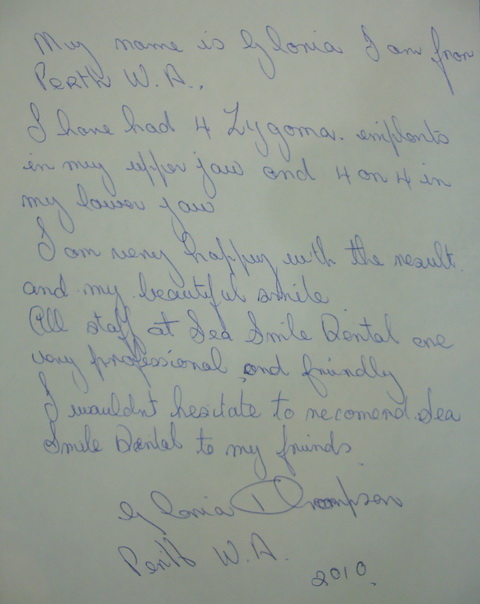 My name is Gloria I am from
Perth W.A.,
I have had 4 Zygoma. emplants
in my upper jaw and 4 on 4 in
my lower jaw
I am very happy with the result.
and my beautiful smile
All staff at Sea Smile Dental are
very professional and friendly
I wouldn't hesitate to recomend Sea
Smile Dental to my friends
Gloria Thompson
Perth W.A.
2010.